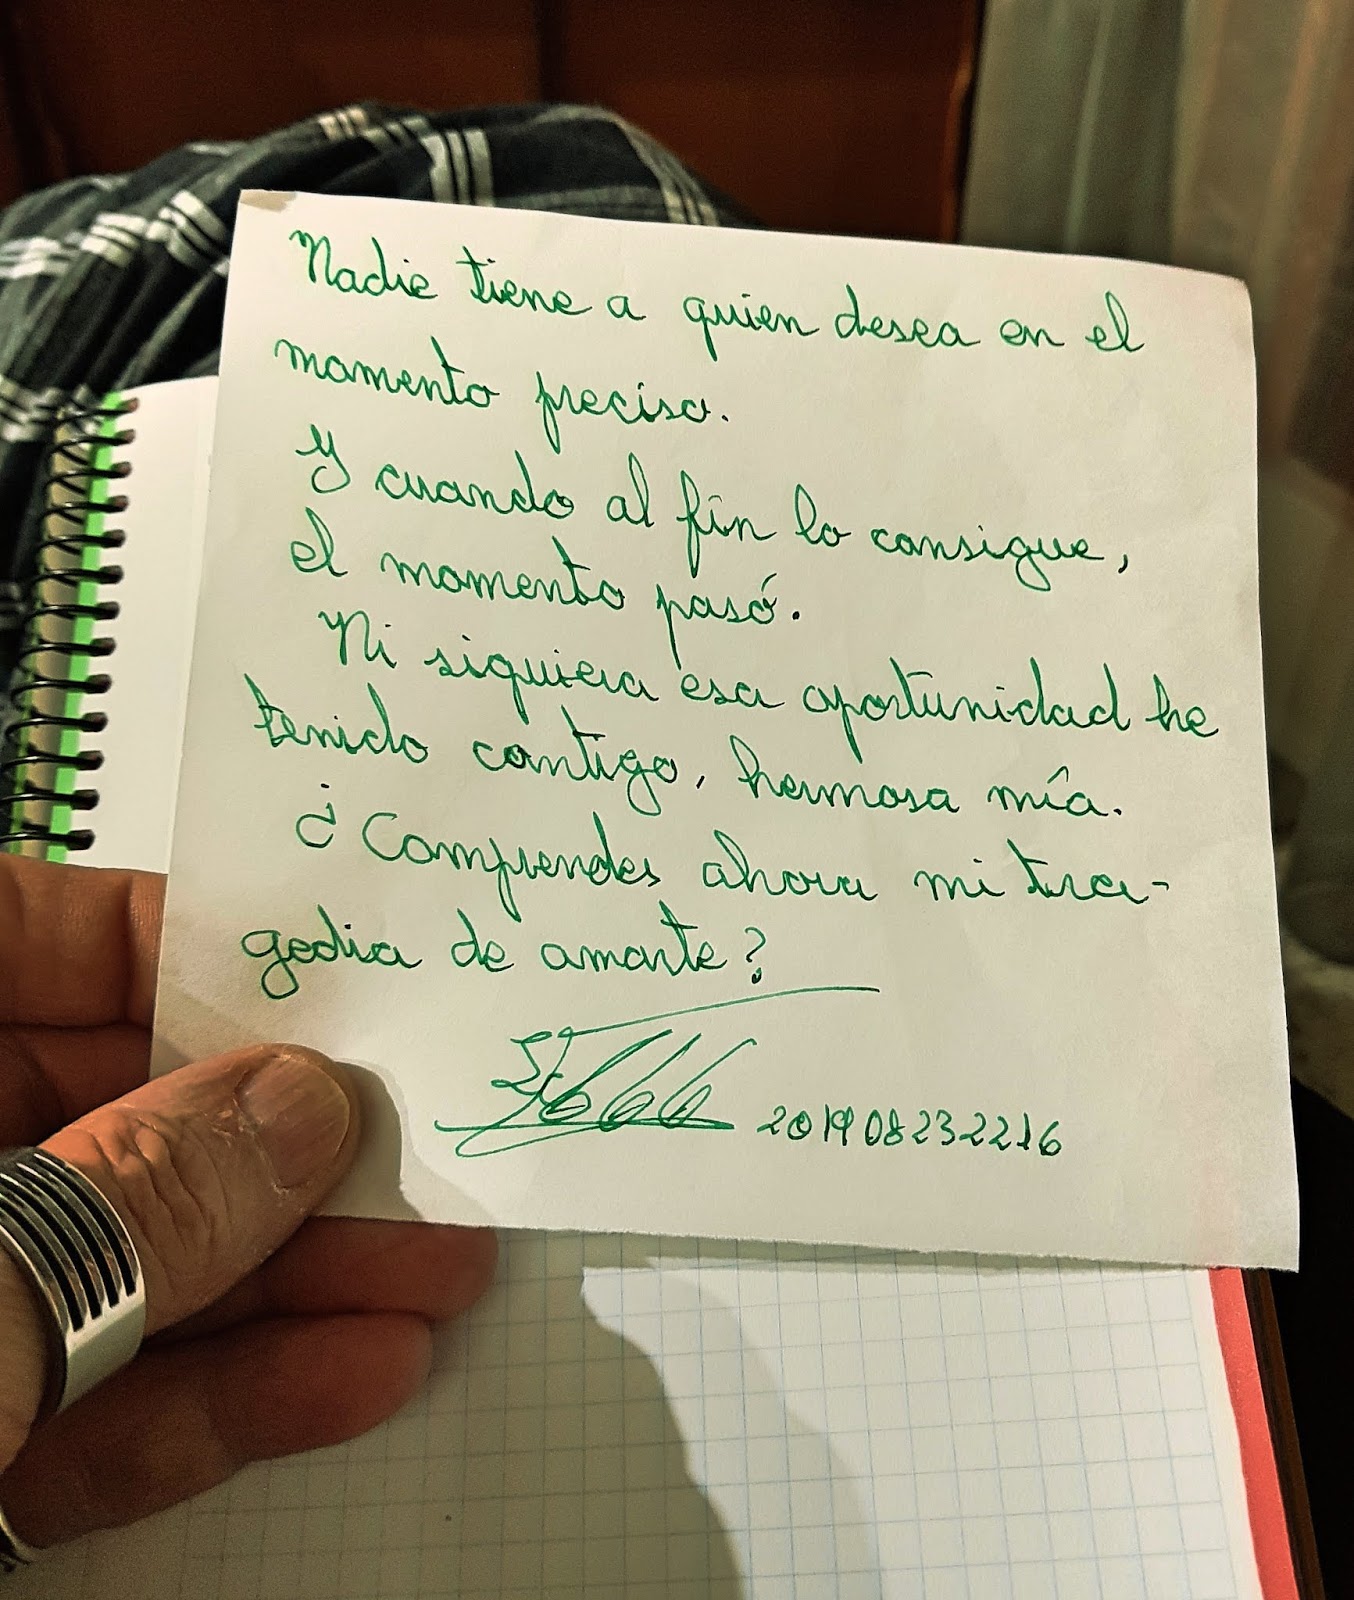 Nadie tiene a quien desea en el
momento preciso.
Y cuando al fin lo consigue,
el momento pasó.
Ni siquiera esa oportunidad he
tenido contigo, hermosa mía.
¿Comprendes ahora mi tra-
gedia de amarte?
201908232216